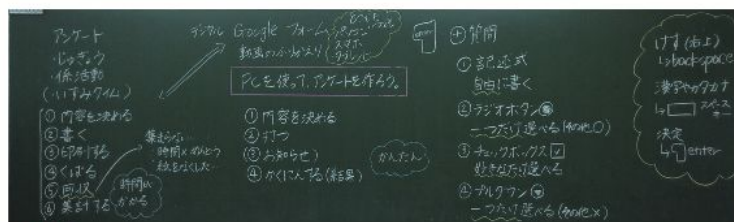 アンケート
・じゅぎょう
・係活動
(いずみタイム)
① 内容を決める
② 書く
③ 印刷する
④ くばる
⑤ 回収
⑥ 集計する
集まらない
・時間×めんどう
・紙をなくした
時間が
かかる
デジタル Google フォーム
動画のふりかえり
パソコン
スマホ
タブレット
PCを使って、アンケートを作ろう。
① 内容を決める
② 打つ
(③ お知らせ)
④ かくにんする(結果)
かんたん
enter
⊕ 質問
① 記述式
自由に書く
② ラジオボタン
一つだけ選べる(その他○)
③ チェックボックス
好きなだけ選べる
④ プルダウン
一つだけ選べる(その他×)
けす(右上)
↳ backspace
漢字やカタカナ
↳ スペースキー
決定
↳ enter